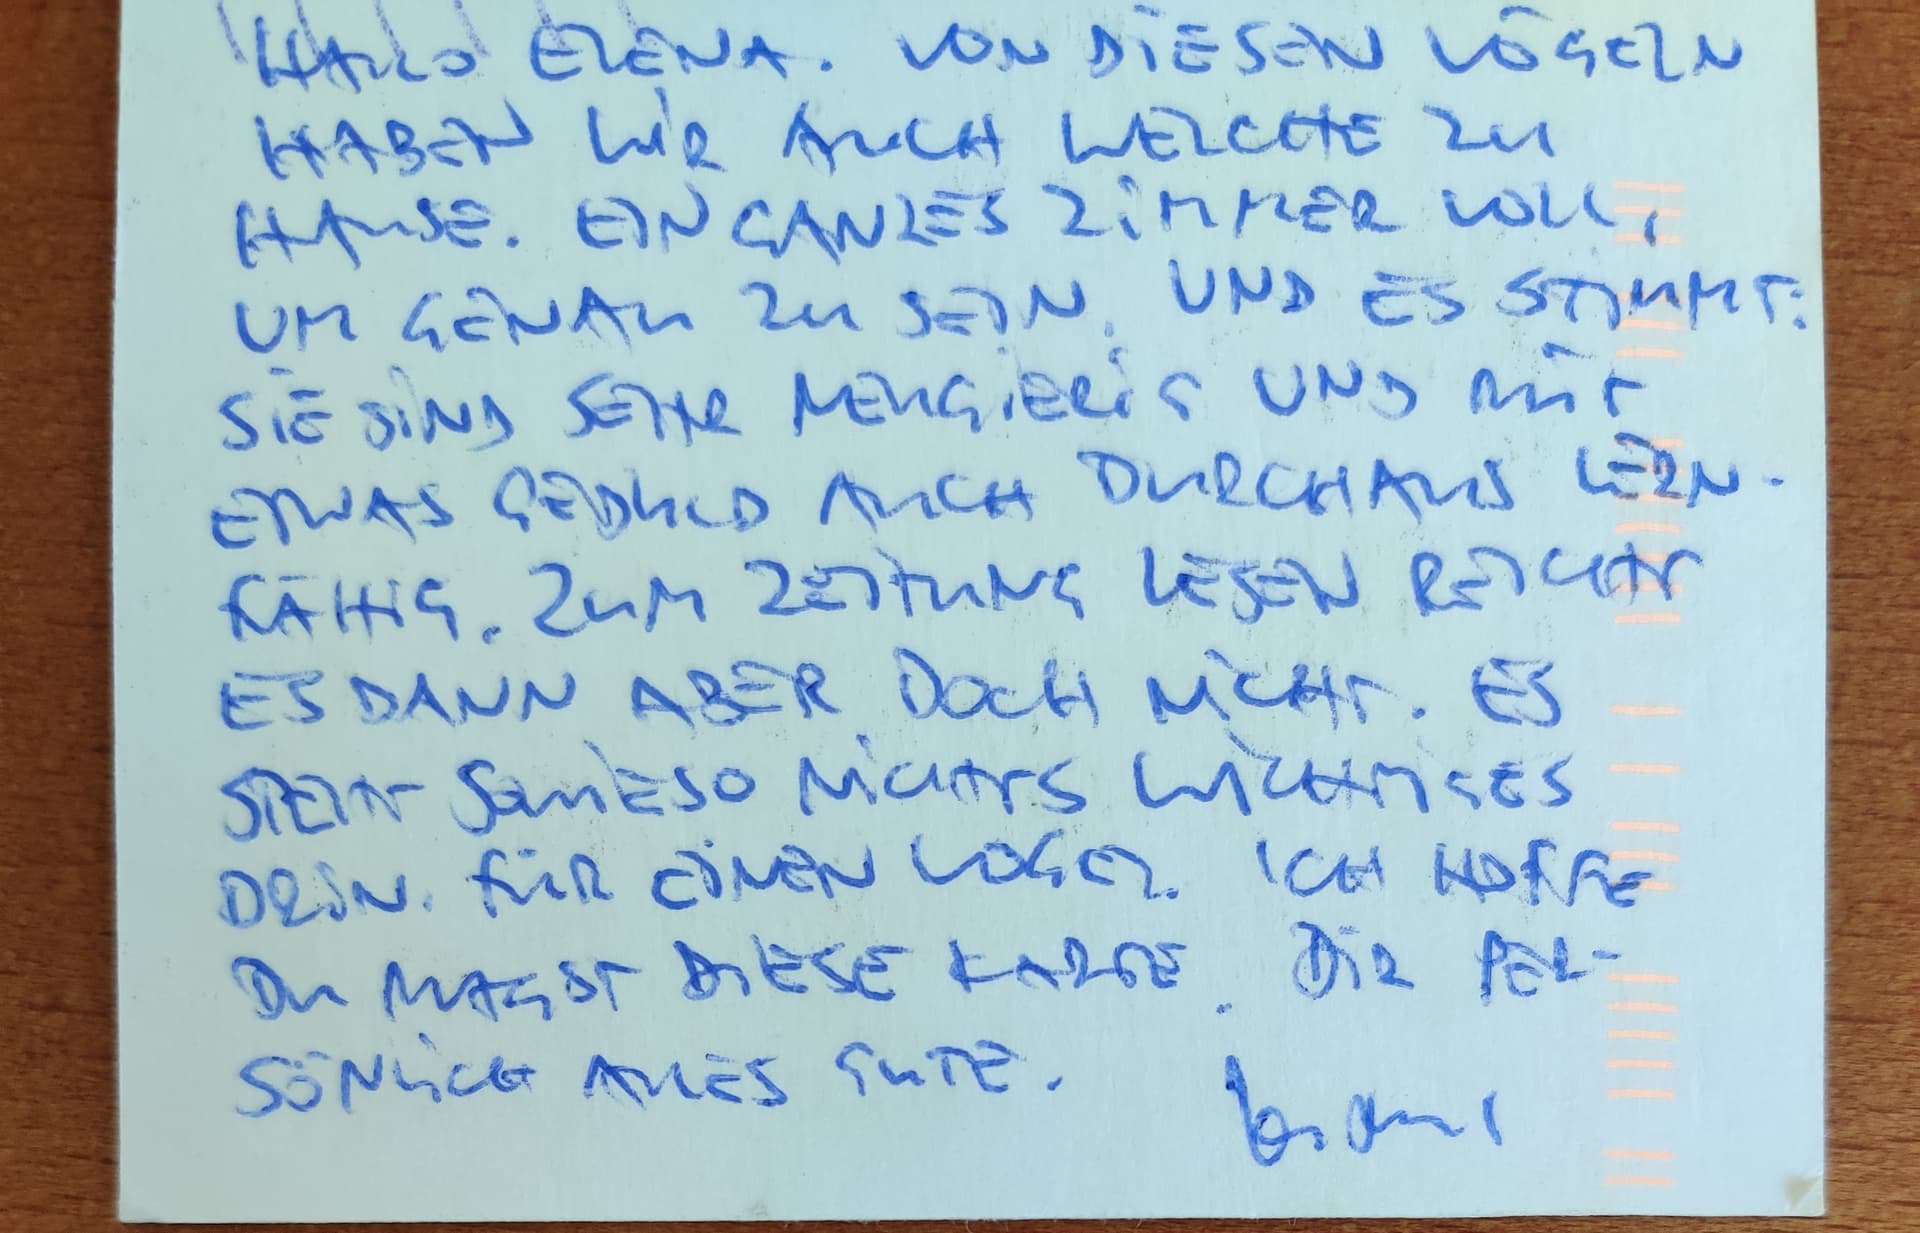 HALLO ELENA. VON DIESEN VÖGELN
HABEN WIR AUCH WELCHE ZU
HAUSE. EIN GANZES ZIMMER VOLL,
UM GENAU ZU SEIN. UND ES STIMMT:
SIE SIND SEHR NEUGIERIG UND MIT
ETWAS GEDULD AUCH DURCHAUS LERN-
FÄHIG. ZUM ZEITUNG LESEN REICHT
ES DANN ABER DOCH NICHT. ES
STEHT SOWIESO NICHTS WICHTIGES
DRIN. FÜR EINEN VOGEL. ICH HOFFE
DU MAGST DIESE KARTE. DIR PER-
SÖNLICH ALLES GUTE.